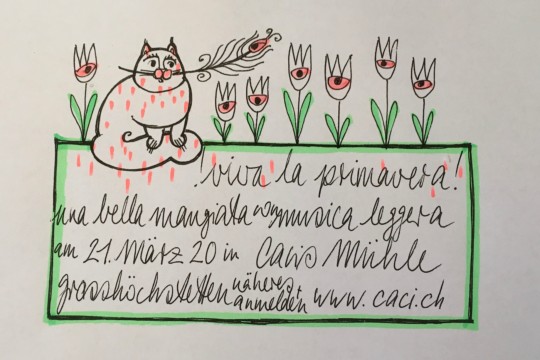 viva la primavera!
una bella mangiata con musica leggera
am 21. März 20 in Cacis Mühle
grosshöchstetten näheres + anmelden www.caci.ch